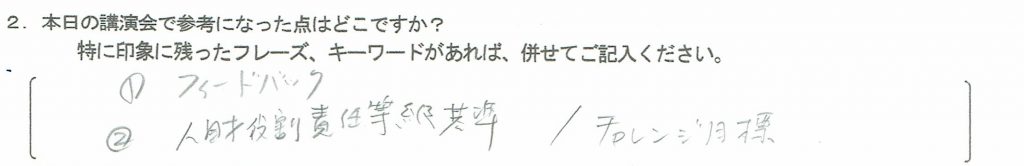 2．本日の講演会で参考になった点はどこですか？
特に印象に残ったフレーズ、キーワードがあれば、併せてご記入ください。
① フィードバック
② 人財役割責任等級基準 / チャレンジ目標